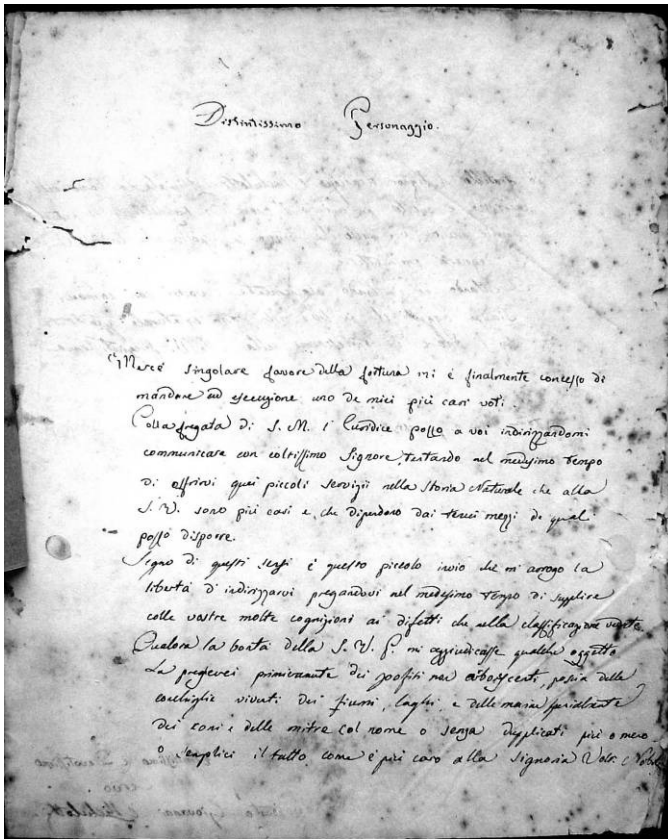 Distintissimo Personaggio.
Mercé singolare favore della fortuna mi è finalmente concesso di
mandare ad esecuzione uno de miei più cari voti.
Colla fregata di S. M. l'Euridice posso a voi indirizzandomi
communicare con coltissimo Signore, tentando nel medesimo tempo
di offrirvi quei piccoli servigii nella Storia Naturale che alla
S. V. sono più cari e che dipendono dai tenui mezzi de quali
posso disporre.
Segno di questi sensi è questo piccolo invio che mi arrogo la
libertà d'indirizzarvi pregandovi nel medesimo tempo di supplire
colle vostre molte cognizioni ai difetti che nella classificazione
Qualora la bontà della S. V. mi aggiudicasse qualche oggetto
La pregherei dei zoofiti non arborescenti, poscia delle
conchiglie viventi dei fiumi, laghi e delle marine
dei coni e delle mitre col nome o senza duplicati più o meno
o semplici il tutto come è più caro alla Signoria